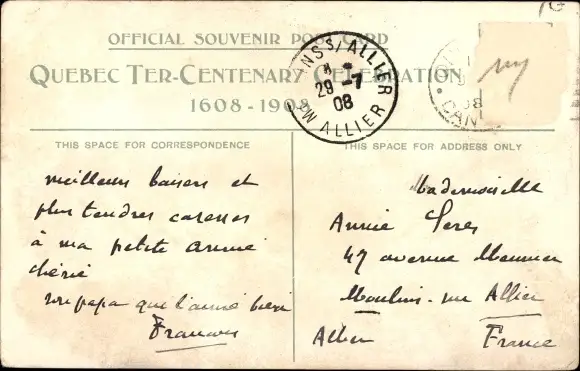 OFFICIAL SOUVENIR POST CARD
QUEBEC TER-CENTENARY CELEBRATION
1608-1908
INS S/ALLIER
29 -7
08
ALLIER
CAN
THIS SPACE FOR CORRESPONDENCE
THIS SPACE FOR ADDRESS ONLY
meilleurs baisers et
plus tendres caresses
à ma petite
chérie
papa que l'aime bien
Mademoiselle
Annie
47 avenue Meunier
Moulins-sur Allier
Allier France